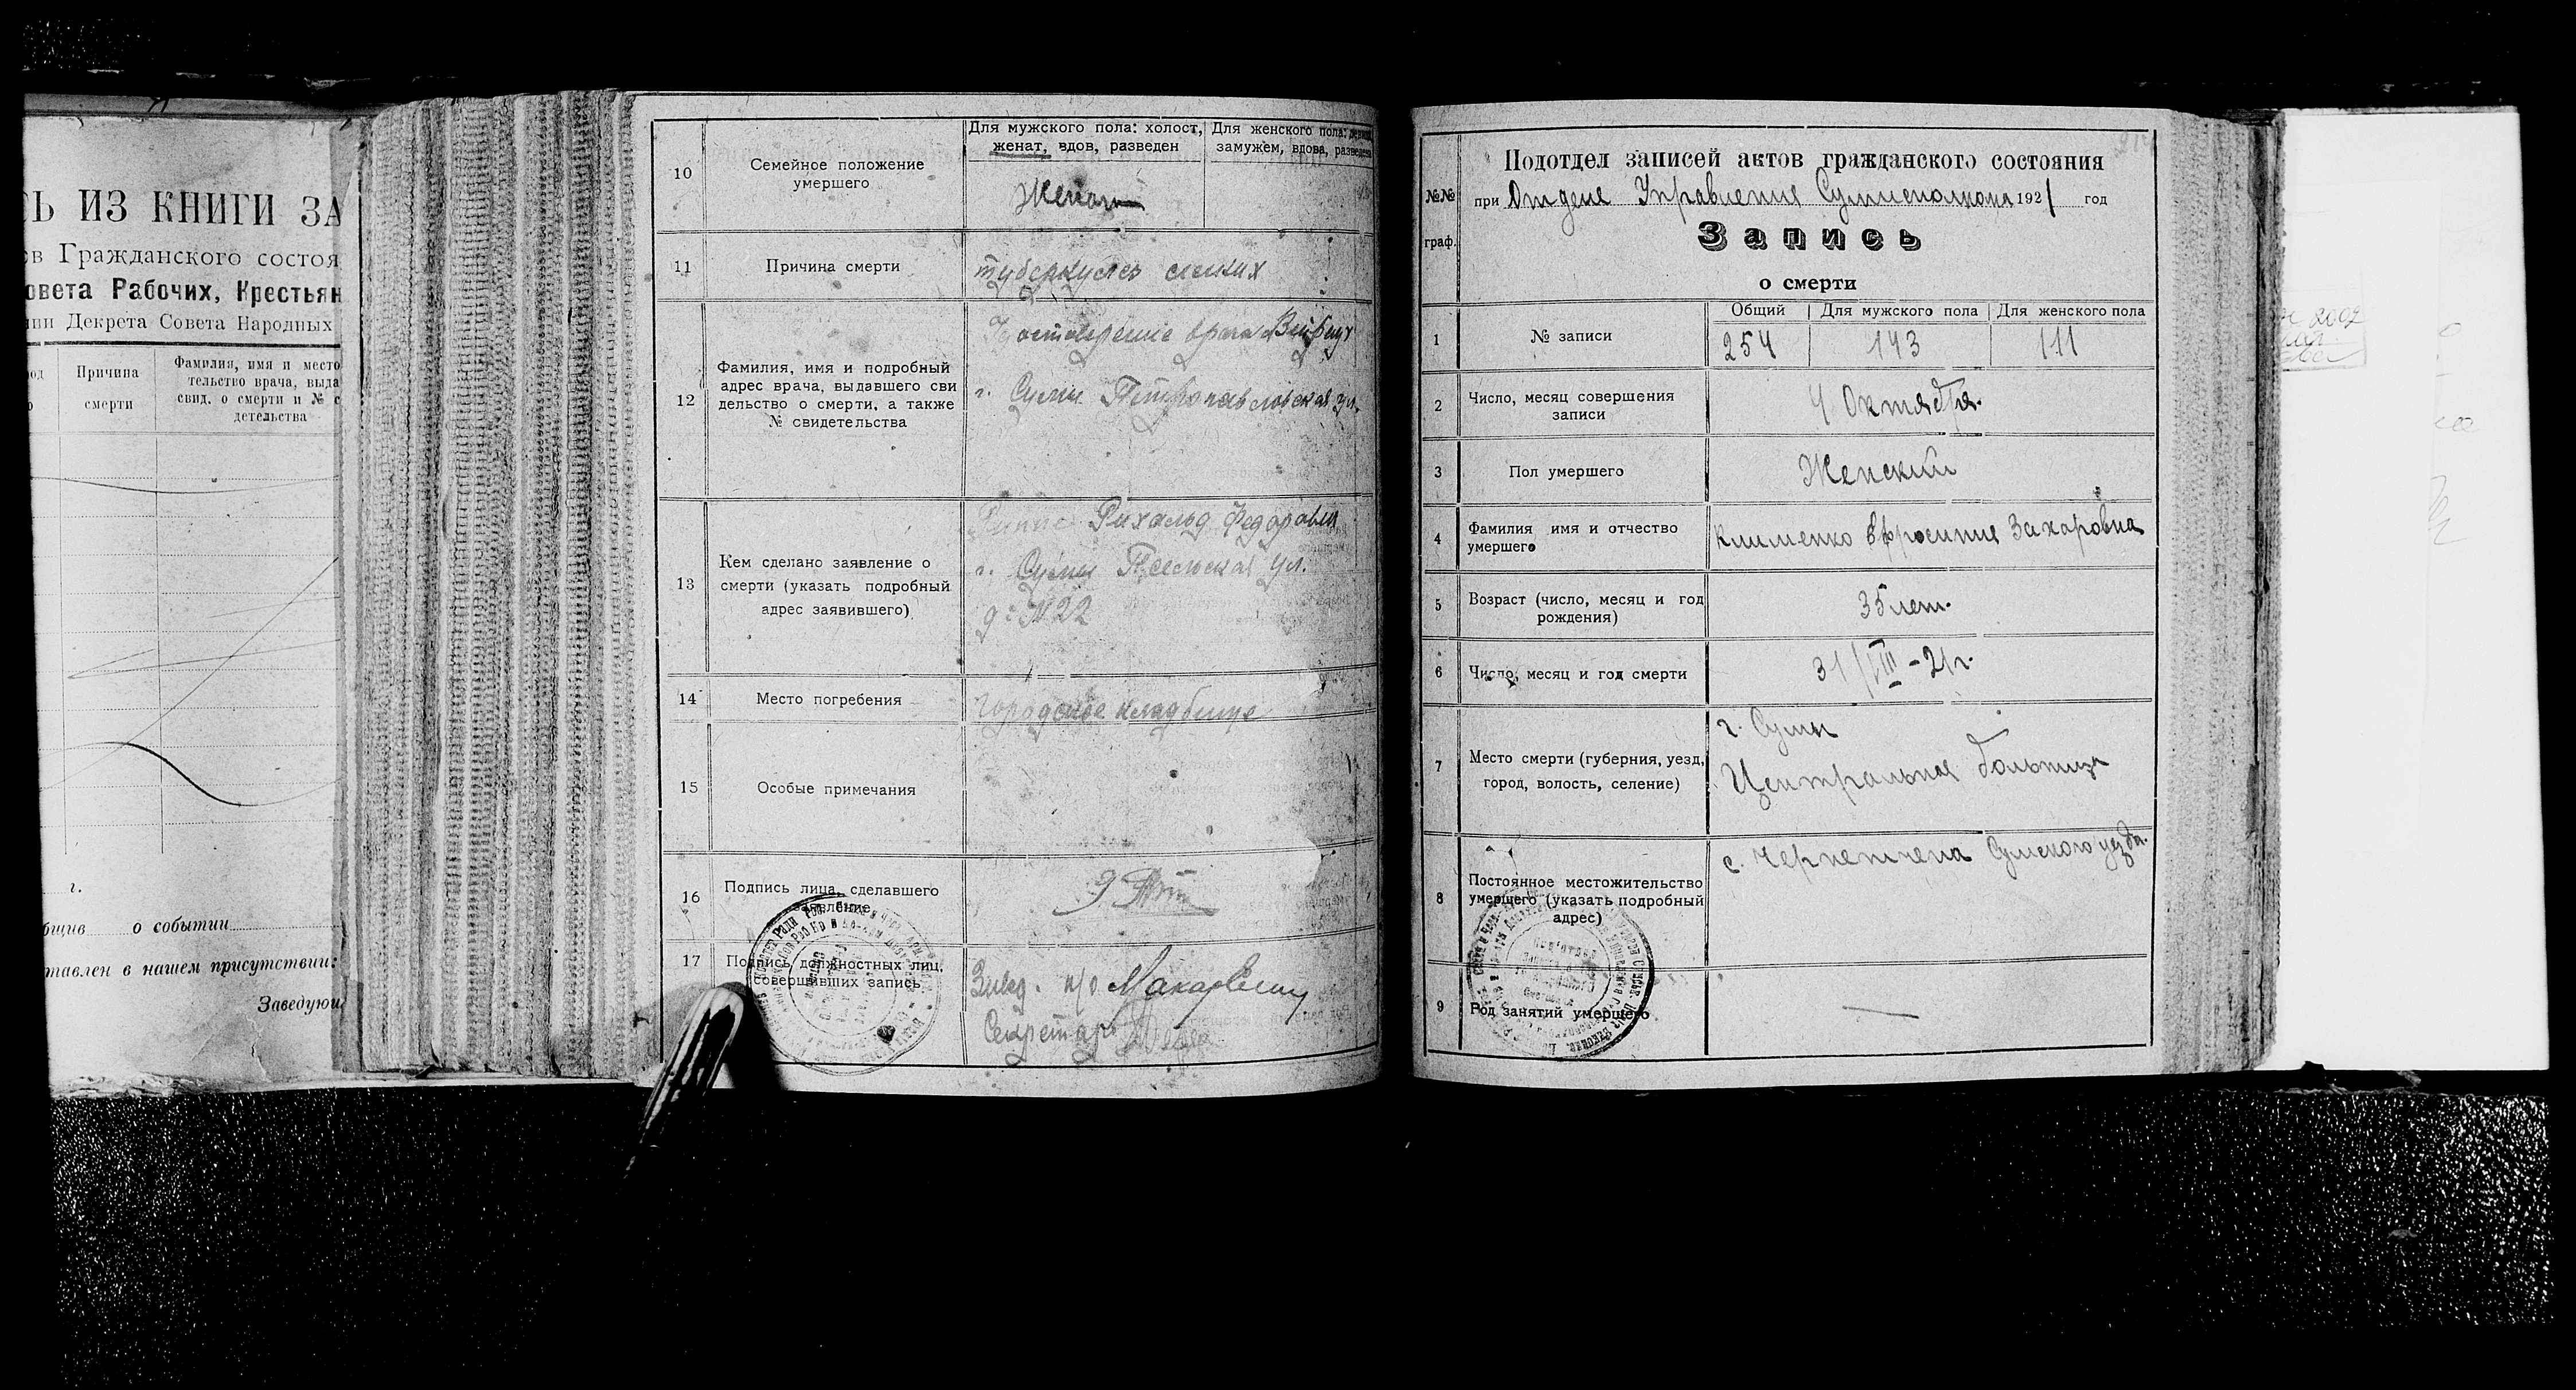 ИЗ КНИГИ ЗА
Гражданского состоя
Рабочих, Крестьян
Декрета Совета Народных
Причина
смерти
Фамилия, имя и место
тельство врача, выда
свид. о смерти и № с
детельства
г.
о событии
тавлен в нашем присутствии:
Заведую
10
Семейное положение
умершего
Для мужского пола: холост,
женат, вдов, разведен
Для женского пола:
замужем, вдова, разведена
Женат
11
Причина смерти
туберкулез легких
12
Фамилия, имя и подробный
адрес врача, выдавшего сви
дельство о смерти, а также
№ свидетельства
врача
г. Сумы Петропавловская ул.
13
Кем сделано заявление о
смерти (указать подробный
адрес заявившего)
Рихальд Федорович
г. Сумы Псельская ул.
д. № 22
14
Место погребения
Городское кладбище
15
Особые примечания
16
Подпись лица, сделавшего
заявление
17
Подпись должностных лиц,
совершивших запись
Завед. п/о Макаревич
Секретарь
№№
граф.
Подотдел записей актов гражданского состояния
при Отделе Управления Сумисполкома 1921 год
Запись
о смерти
1
№ записи
Общий
Для мужского пола
Для женского пола
254
143
111
2
Число, месяц совершения
записи
4 Октября.
3
Пол умершего
Женский
4
Фамилия имя и отчество
умершего
Клименко Ефросиния Захаровна
5
Возраст (число, месяц и год
рождения)
35 лет.
6
Число, месяц и год смерти
31/VIII - 21 г.
7
Место смерти (губерния, уезд,
город, волость, селение)
г. Сумы
Центральная больница
8
Постоянное местожительство
умершего (указать подробный
адрес)
с. Чернетчена Сумского уезда.
9
Род занятий умершего
2002